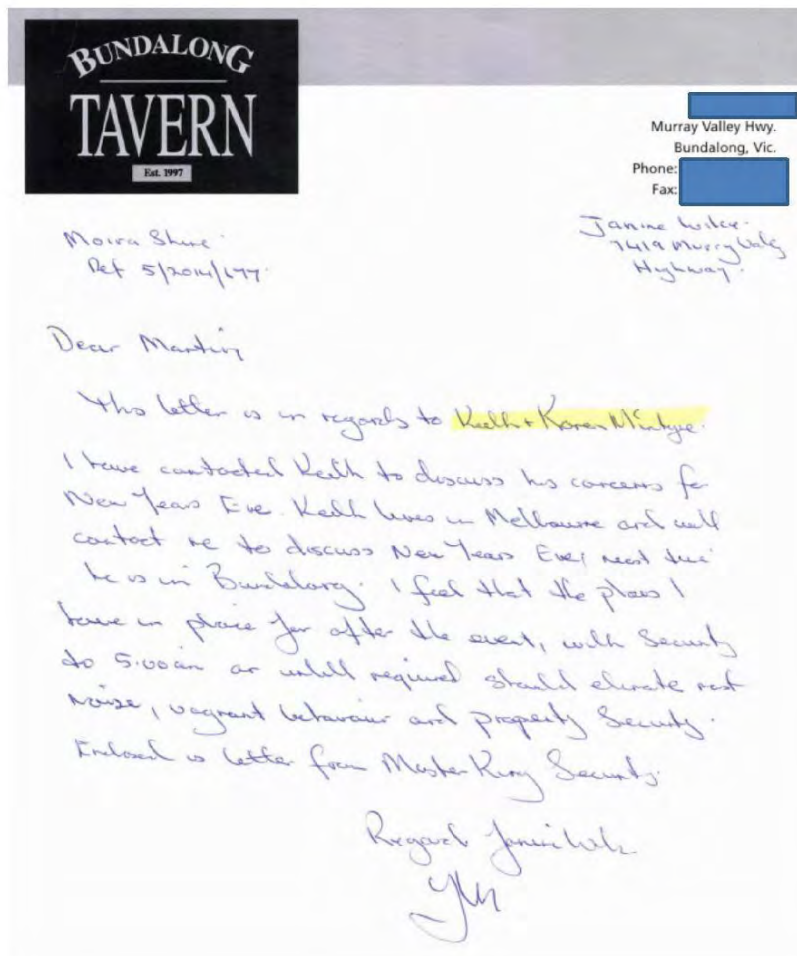 BUNDALONG
TAVERN
Est. 1997
Murray Valley Hwy.
Bundalong, Vic.
Phone:
Fax:
Moira Shire
Ref 5/2014/177
Janine
7419 Murry Valey
Highway
Dear Martin
This letter is in regards to Keith + Karen Mintyre.
I have contacted Keith to discuss his concerns for
New Years Eve. Keith lives in Melbourne and will
contact me to discuss New Years Eve, next time
he is in Bundalong. I feel that the plans I
have in place for after the event, with Security
to 5.00am or untill required should most
noise, vagrant behaviour and property Security.
Enclosed is letter from Master King Security.
Regard